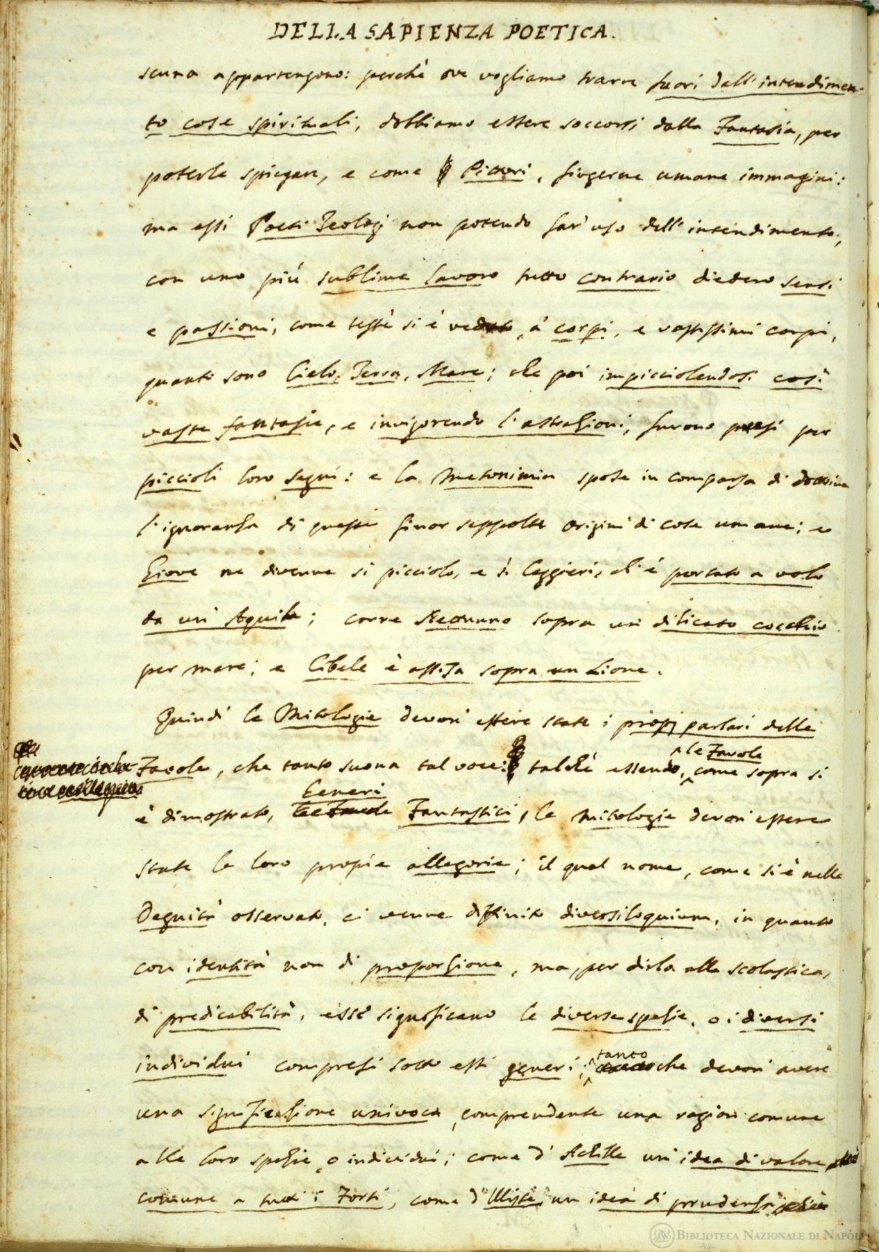 DELLA SAPIENZA POETICA.
scuna appartengono: perchè ove vogliamo trarre fuori dall'intendimen-
to cose spirituali, dobbiamo essere soccorsi dalla Fantasia, per
poterle spiegare, e come Pittori, fingerne umane immagini:
ma essi Poeti Teologi non potendo far' uso dell'intendimento,
con uno più sublime lavoro tutto contrario diedero sensi
e passioni, come testè si è veduto, a' corpi, e vastissimi corpi,
quanti sono Cielo, Terra, Mare; che poi impicciolendosi così
vaste fantasie, e invigorendo l'astrazioni, furono presi per
piccioli loro segni: e la Metonimia spose in comparsa di dottrina
l'ignoranza di queste finor seppolte origini di cose umane; e
Giove ne divenne sì picciolo, e sì leggieri, ch'è portato a volo
da un' Aquila; corre Nettunno sopra un dilicato cocchio
per mare; e Cibele è assisa sopra un Lione.
Quindi le Mitologie devon' essere state i propj parlari delle
Favole, che tanto suona tal voce: talchè essendo le Favole, come sopra si
è dimostrato, Generi Fantastici, le Mitologie devon' essere
state le loro propie allegorie; il qual nome, come si è nelle
Degnità osservato, ci venne diffinito diversiloquium, in quanto
con identità non di proporzione, ma, per dirla alla scolastica,
di predicabilità, esse significano le diverse spezie, o i diversi
individui compresi sotto essi generi: tanto che devon' avere
una significazione univoca, comprendente una ragion comune
alle loro spezie, o individui; come d' Achille un' idea di valore
comune a tutti i Forti, come d' Ulisse un' idea di prudenza
BIBLIOTECA NAZIONALE DI NAPOLI